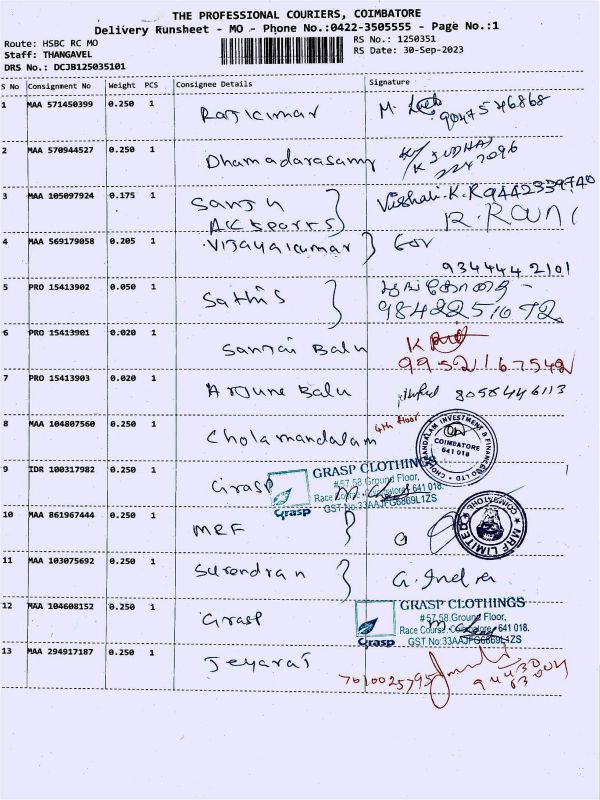 THE PROFESSIONAL COURIERS, COIMBATORE
Delivery Runsheet - MO - Phone No.:0422-3505555 - Page No.:1
Route: HSBC RC MO
RS No.: 1250351
Staff: THANGAVEL
RS Date: 30-Sep-2023
DRS No.: DCJB125035101
S No Consignment No Weight PCS Consignee Details Signature
1 MAA 571450399 0.250 1 Rajkumar M. 9047546868
2 MAA 570944527 0.250 1 Dhamadarasamy K SUDHA 2247096
3 MAA 105097924 0.175 1 Sanju Vaishali.K.R 9442339740
AK Sports R. Rani
4 MAA 569179058 0.205 1 Vijayakumar } Gov
9344442101
5 PRO 15413902 0.050 1 Sathis
9842251092
6 PRO 15413901 0.020 1 Sanjai Balu K
9952167542
7 PRO 15413903 0.020 1 Arjune Balu 8056446113
8 MAA 104807560 0.250 1 Cholamandalam 4th floor
CHOLAMANDALAM INVESTMENT & FINANCE CO LTD
COIMBATORE
641 018
9 IDR 100317982 0.250 1 Grasp
Grasp
GRASP CLOTHINGS
#57,58 Ground Floor,
Race Course, Coimbatore 641 018.
GST No:33AAJFG6869L1ZS
10 MAA 861967444 0.250 1 MRF
MRF LIMITED COIMBATORE
11 MAA 103075692 0.250 1 Surendran } G. Indra
12 MAA 104608152 0.250 1 Grasp
Grasp
GRASP CLOTHINGS
#57,58 Ground Floor,
Race Course, Coimbatore 641 018.
GST No:33AAJFG6869L1ZS
13 MAA 294917187 0.250 1 Jeyaraj
7010025795